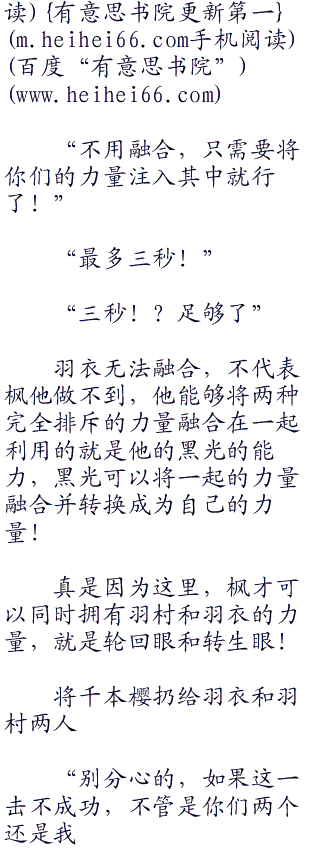 读) {有意思书院更新第一}
(m.heihei66.com手机阅读)
(百度“有意思书院”)
(www.heihei66.com)
“不用融合，只需要将
你们的力量注入其中就行
了！”
“最多三秒！”
“三秒！？足够了”
羽衣无法融合，不代表
枫他做不到，他能够将两种
完全排斥的力量融合在一起
利用的就是他的黑光的能
力，黑光可以将一起的力量
融合并转换成为自己的力
量！
真是因为这里，枫才可
以同时拥有羽村和羽衣的力
量，就是轮回眼和转生眼！
将千本樱扔给羽衣和羽
村两人
“别分心的，如果这一
击不成功，不管是你们两个
还是我